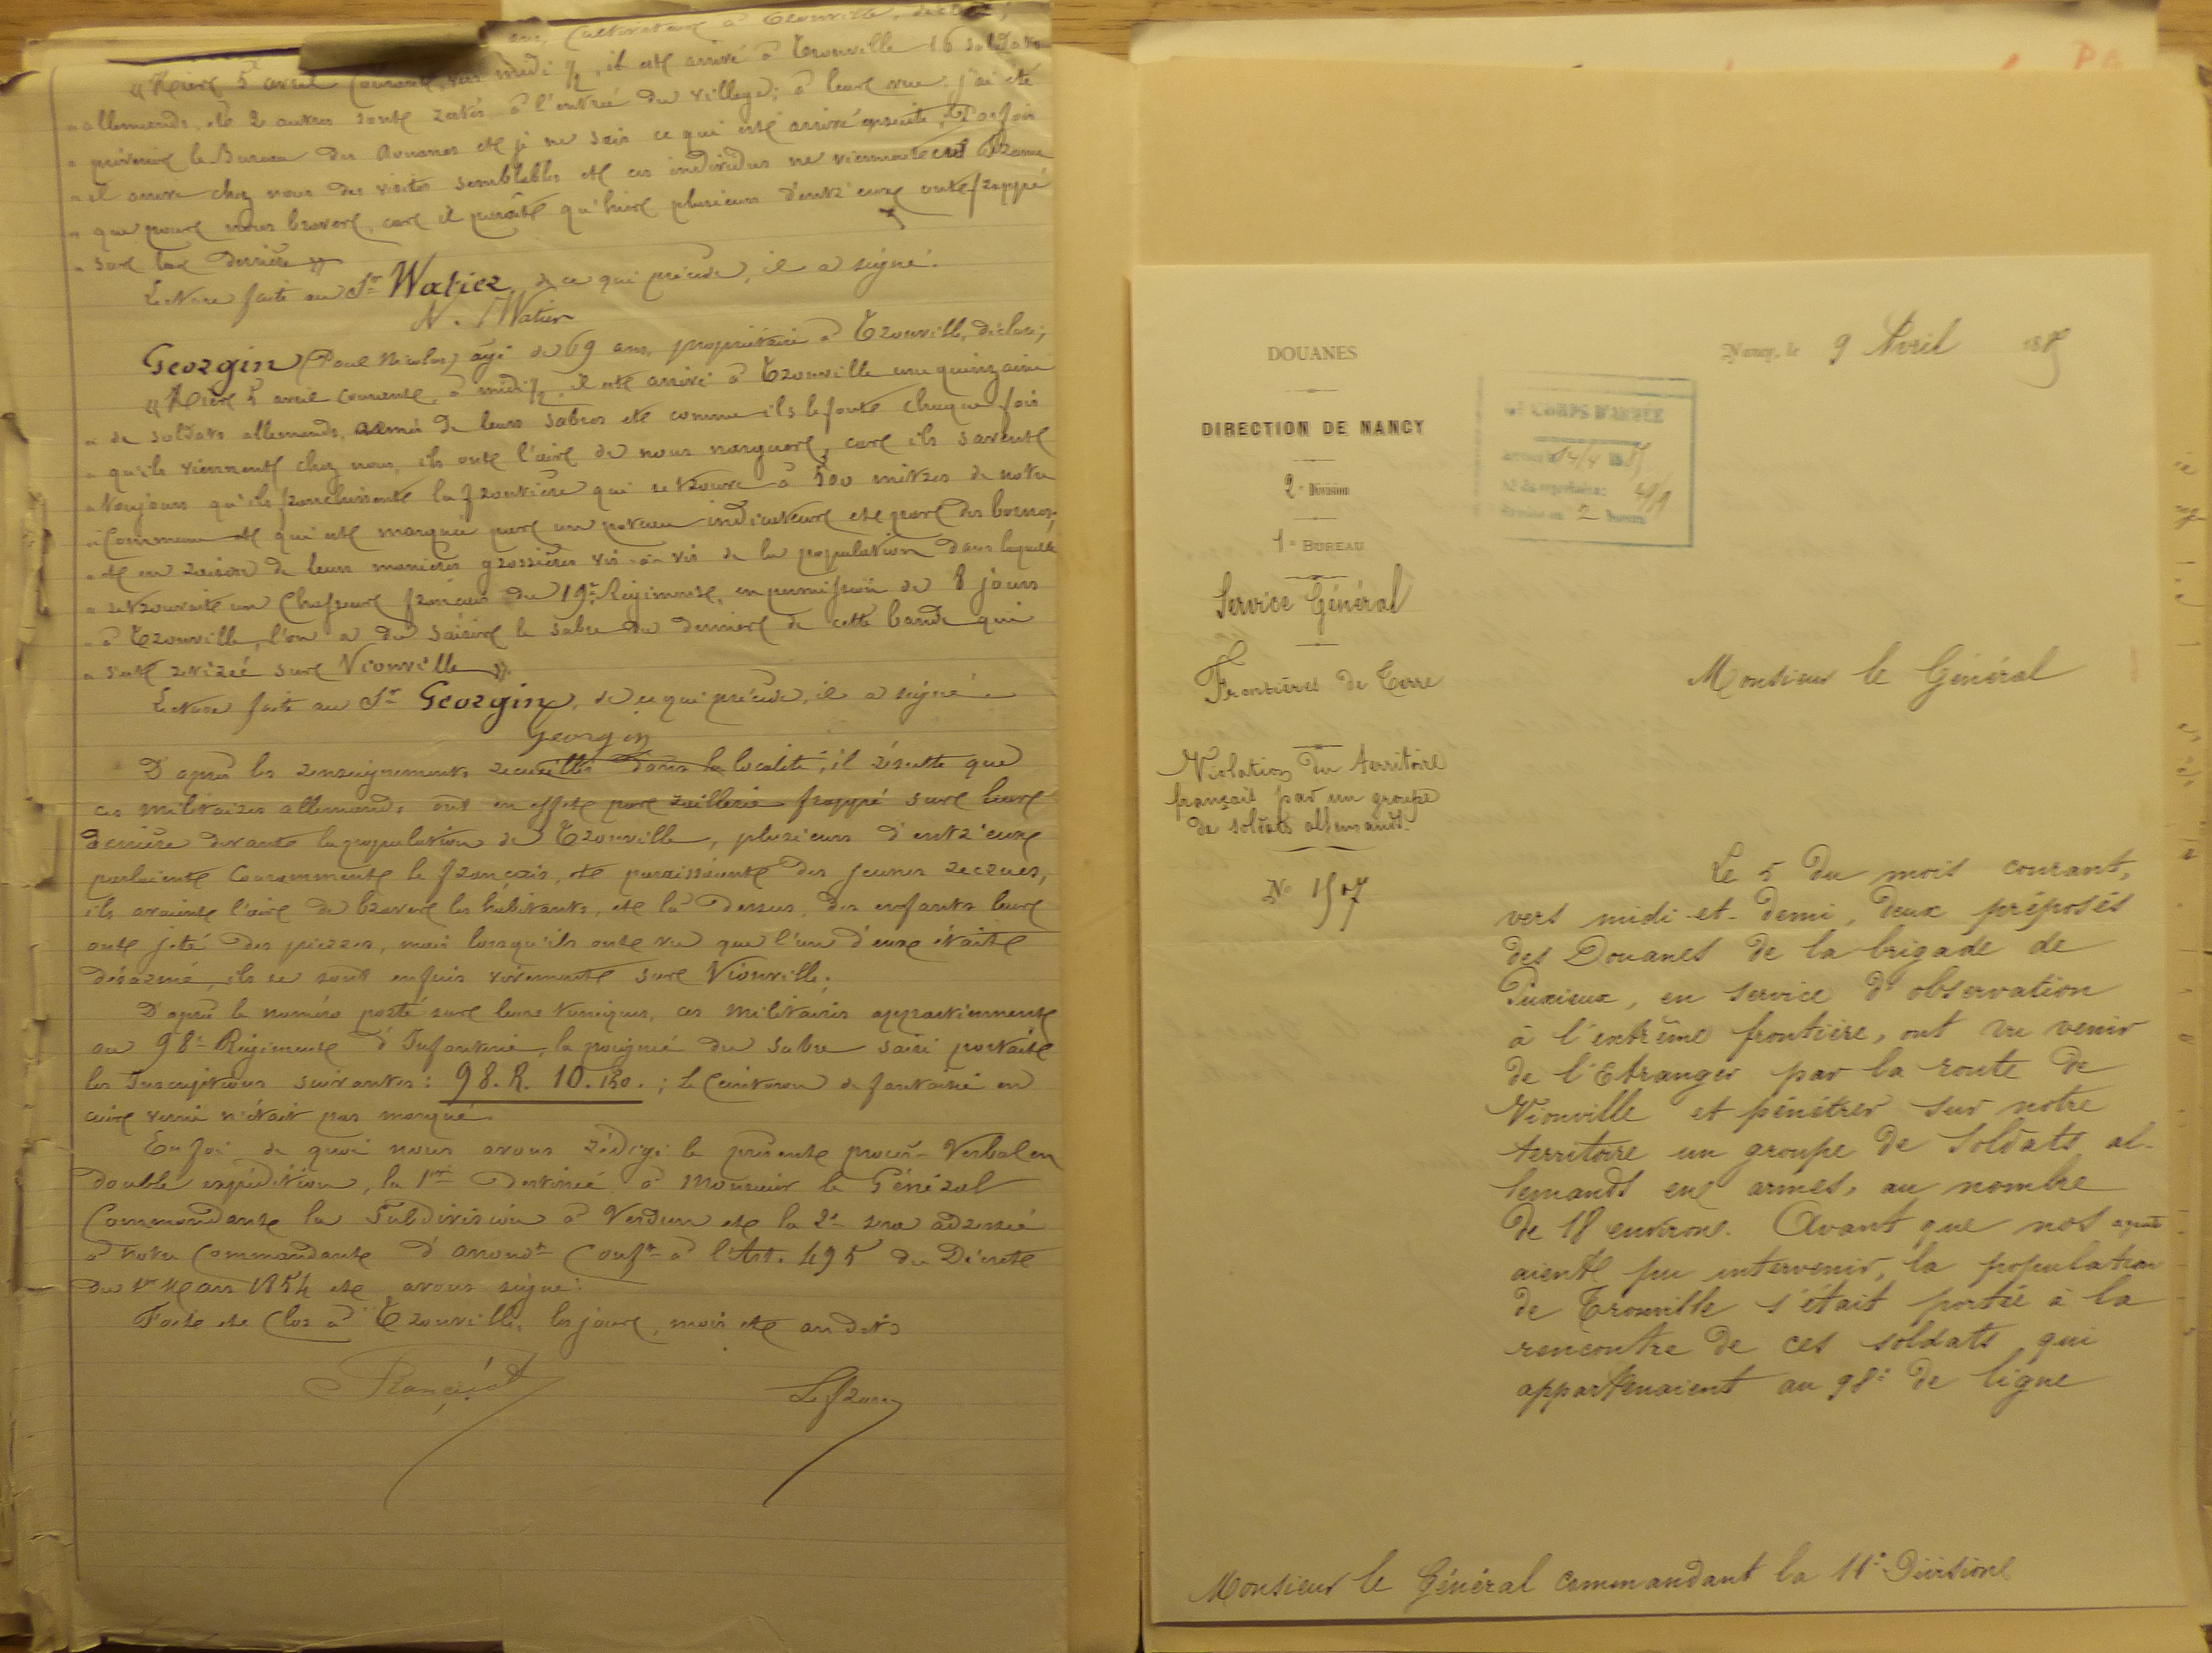 ans, Cultivateur à Tronville, déclare;
« Hier 5 avril Courant, vers midi ½, il est arrivé à Tronville 16 soldats
" allemands, et 2 autres sont restés à l'entrée du village; à leur vue j'ai été
" prévenir le Bureau des Douanes et je ne sais ce qui est arrivé ensuite. Parfois
" il arrive chez nous des visites semblables et ces individus ne viennent
" que pour nous braver, car il paraît qu'hier plusieurs d'entr'eux ont frappé
" sur leur derrière »
Lecture faite au Sr Watier, de ce qui précède, il a signé.
N. Watier
Georgin (Paul Nicolas) âgé de 69 ans, propriétaire à Tronville, déclare;
« Hier 5 avril courant, à midi ½, il est arrivé à Tronville une quinzaine
" de soldats allemands, armés de leurs sabres et comme ils le font chaque fois
" qu'ils viennent chez nous, ils ont l'air de nous narguer, car ils savent
" toujours qu'ils franchissent la frontière qui se trouve à 500 mètres de notre
" Commune et qui est marquée par un poteau indicateur et par des bornes,
" et en raison de leurs manières grossières vis-à-vis de la population dans laquelle
" se trouvait un Chasseur français du 19e Régiment, en permission de 8 jours
" à Tronville, l'on a dû saisir le sabre du dernier de cette bande qui
" s'est retirée sur Vionville ».
Lecture faite au Sr Georgin, de ce qui précède, il a signé.
Georgin
D'après les renseignements recueillis dans la localité, il résulte que
ces militaires allemands ont en effet par raillerie frappé sur leur
derrière devant la population de Tronville, plusieurs d'entr'eux
parlaient Couramment le français, et paraissaient des jeunes recrues,
ils avaient l'air de braver les habitants, et là dessus, des enfants leur
ont jeté des pierres, mais lorsqu'ils ont vu que l'un d'eux était
désarmé, ils se sont enfuis vivement sur Vionville.
D'après le numéro porté sur leurs tuniques, ces militaires appartiennent
au 98e Régiment d'Infanterie, la poignée du sabre saisi portait
les Inscriptions suivantes: 98. R. 10. 130. ; le Ceinturon de fantaisie en
cuir verni n'était pas marqué.
En foi de quoi nous avons rédigé le présent procès-Verbal en
double expédition, la 1re destinée à Monsieur le Général
Commandant la Subdivision à Verdun et la 2e sera adressée
à notre Commandant d'arrondt Conft à l'Art. 495 du Décret
du 1er Mars 1854 et avons signé:
Fait et Clos à Tronville, les jour, mois et an dits
Lefranc
DOUANES
DIRECTION DE NANCY
2e Division
1er BUREAU
Service Général
Frontières de Terre
Violation du territoire
français par un groupe
de soldats allemands.
No 1507
Nancy, le 9 Avril 188
CORPS D'ARMÉE
14/4
2
Monsieur le Général
Le 5 du mois courant,
vers midi-et-demi, deux préposés
des Douanes de la brigade de
Puxieux, en service d'observation
à l'extrême frontière, ont vu venir
de l'Etranger par la route de
Vionville et pénétrer sur notre
territoire un groupe de soldats al-
lemands en armes, au nombre
de 18 environ. Avant que nos agents
aient pu intervenir, la population
de Tronville s'était portée à la
rencontre de ces soldats qui
appartenaient au 98e de ligne
Monsieur le Général commandant la 11e Division